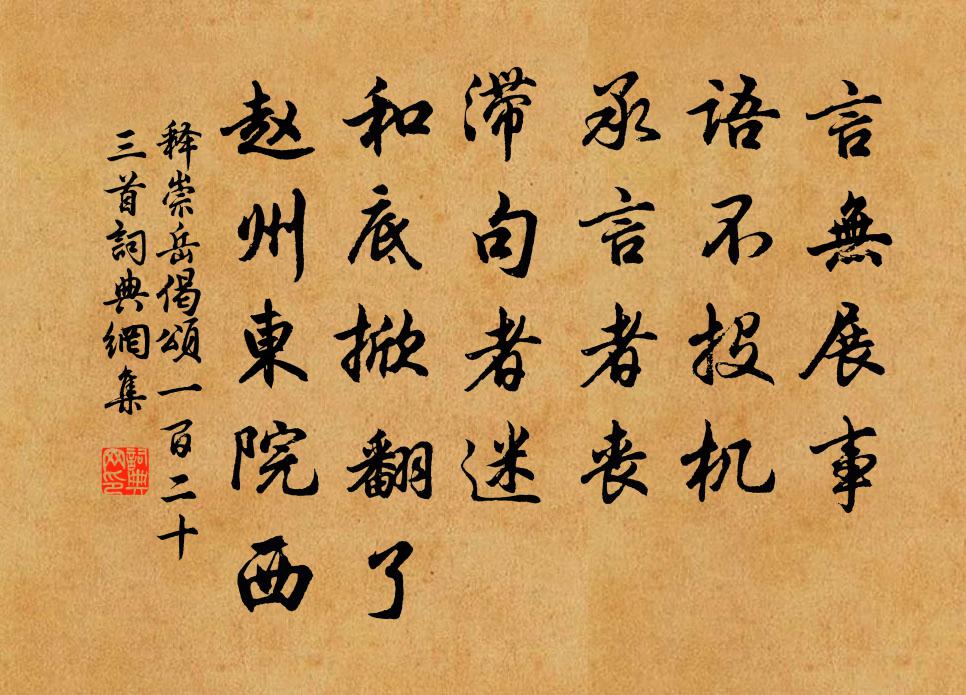 言無展事
語不投机
承言者丧
滞句者迷
和底掀翻了
赵州東院西
释崇岳偈頌一百二十
三首詞典網集
詞典
网印